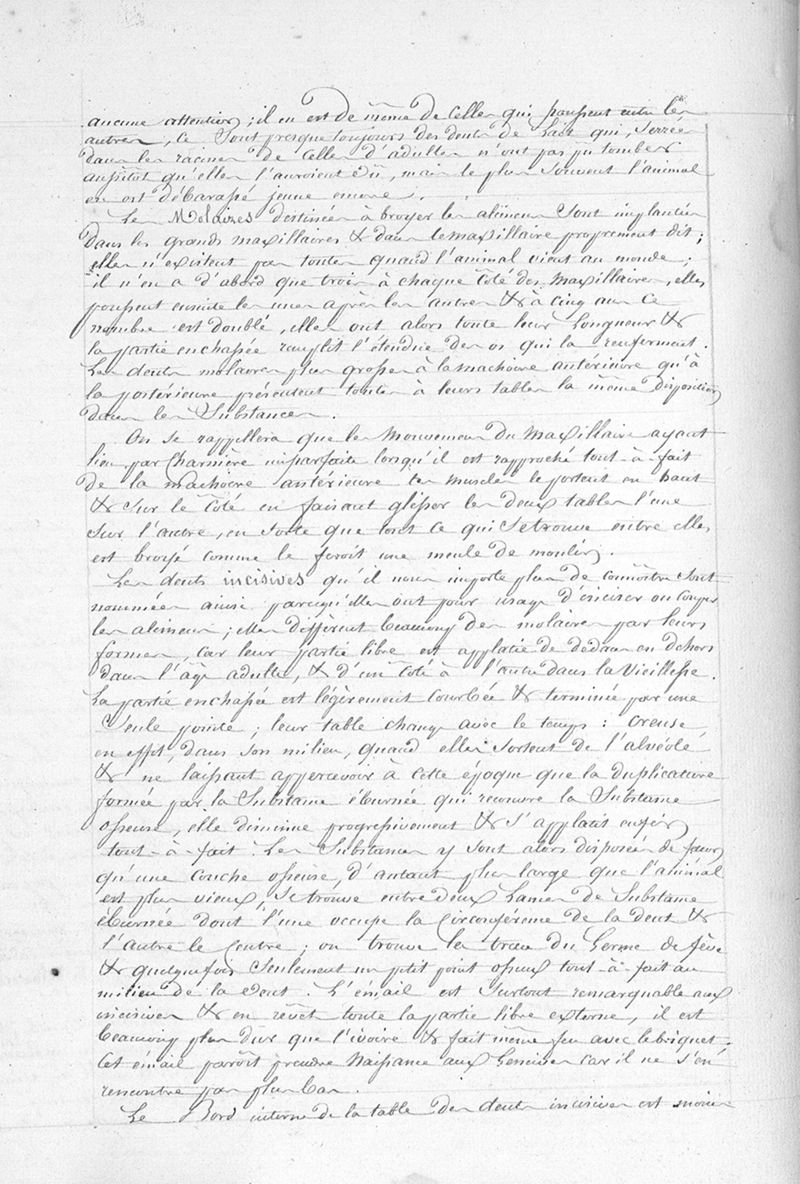 aucune attention ; il en est de même de celles qui poussent entre les
autres, ce sont presque toujours des dents de lait qui, serrées
dans les racines de celles d'adultes n'ont pas pu tomber
aussitot qu'elles l'auroient dû, mais le plus souvent l'animal
en est débarassé jeune encore.
Les Molaires destinées à broyer les alimens sont implantées
dans les grands maxillaires & dans le maxillaire proprement dit ;
elles n'existent pas toutes quand l'animal vient au monde ;
il n'en a d'abord que trois à chaque côté des maxillaires, elles
poussent ensuite les unes après les autres & à cinq ans ce
nombre est doublé, elles ont alors toute leur longueur &
la partie enchassée remplit l'étendue des os qui la renferment.
Les dents molaires plus grosses à la machoire antérieure qu'à
la postérieure présentent toutes à leurs tables la même disposition
dans les substances.
On se rappellera que les mouvemens du maxillaire ayant
lieu par charnière imparfaite lorsqu'il est rapproché tout-à-fait
de la machoire antérieure les muscles le portent en haut
& sur le côté en faisant glisser les deux tables l'une
sur l'autre, en sorte que tout ce qui se trouve entre elles
est broyé comme le feroit une meule de moulin.
Les dents incisives qu'il nous importe plus de connoitre sont
nommées ainsi parcequ'elles ont pour usage d'inciser ou couper
les alimens ; elles diffèrent beaucoup des molaires par leurs
formes, car leur partie libre est applatie de dedans en dehors
dans l'âge adulte, & d'un côté à l'autre dans la vieillesse.
La partie enchassée est légèrement courbée & terminée par une
seule pointe ; leur table change avec le temps : creuse
en effet, dans son milieu, quand elles sortent de l'alvéole
& ne laissant appercevoir à cette époque que la duplicature
formée par la substance éburnée qui recouvre la substance
osseuse, elle diminue progressivement & s'applatit enfin
tout-à-fait. Les substances y sont alors disposées de façon
qu'une couche osseuse, d'autant plus large que l'animal
est plus vieux, se trouve entre deux lames de substance
éburnée dont l'une occupe la circonférence de la dent &
l'autre le centre ; on trouve la trace du germe de fève
& quelquefois seulement un petit point osseux tout-à-fait au
milieu de la dent. L'émail est surtout remarquable aux
incisives & en revêt toute la partie libre externe, il est
beaucoup plus dur que l'ivoire & fait même feu avec le briquet.
Cet émail paroît prendre naissance aux gencives car il ne s'en
rencontre pas plus bas.
Le Bord interne de la table des dents incisives est moins